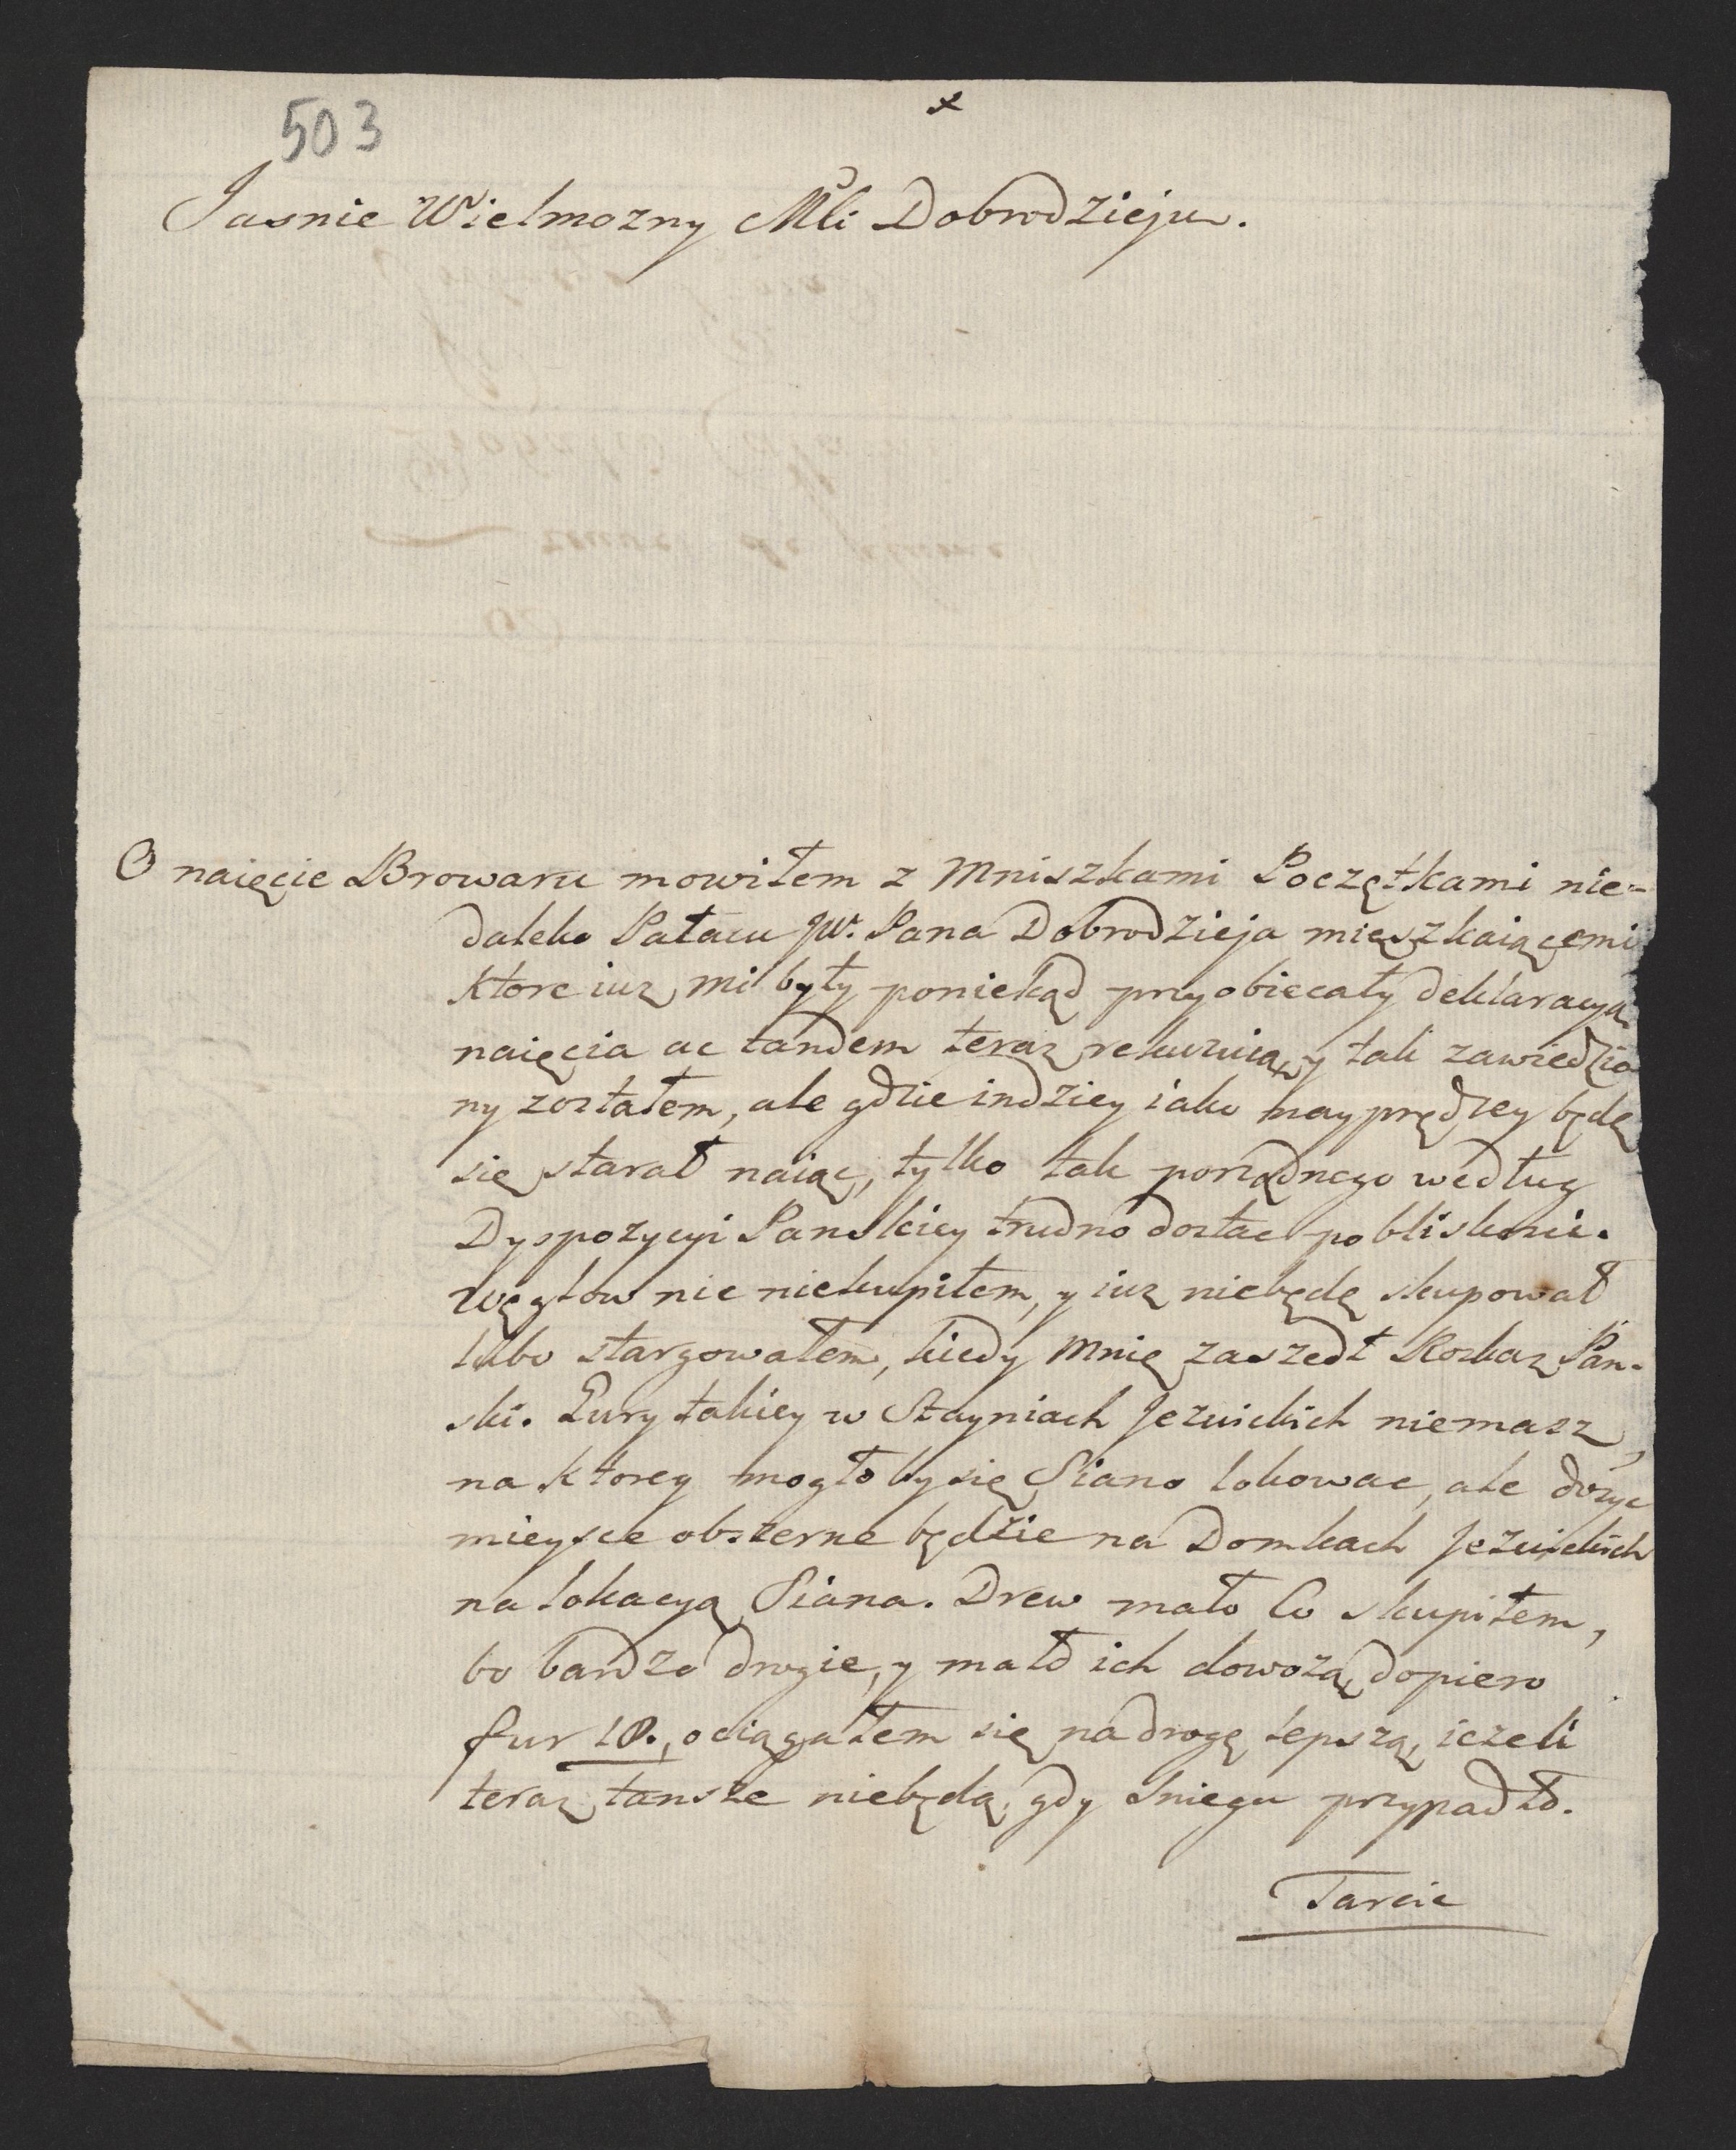 503
Jasnie Wielmozny Mći Dobrodzieju.
O naięcie Browaru mowiłem z Mniszkami Poczętkami nie-
daleko Pałacu JW. Pana Dobrodzieja mięszkaiącemi
ktore iuz mi były poniekąd przyobiecały deklaracyą
naięcia ac tandem teraz rekuzuią, y tak zawiedzio
ny zostałem, ale gdzie indziey iako nayprędzey będę
się starał naiąc, tylko tak porządnego według
Dyspozycyi Panskiey trudno dostac poblisksci.
Węglow nic niekupiłem, y iuz niebędę skupował
lubo stargowałem, kiedy mnie zaszedł Rozkaz Pan-
ski. Gury takiey w Stayniach Jezuickich niemasz,
na ktorey mogłoby się Siano lokowac, ale dosyc
mieysce obszerne będzie na Domkach Jezuickich
na lokacyą Siana. Drew mało co skupiłem,
bo bardzo drogie, y mało ich dowożą, dopiero
fur 18., ociągałem się na drogę lepszą, ieżeli
teraz tansze niebędą, gdy sniegu przypadło.
Tarcic